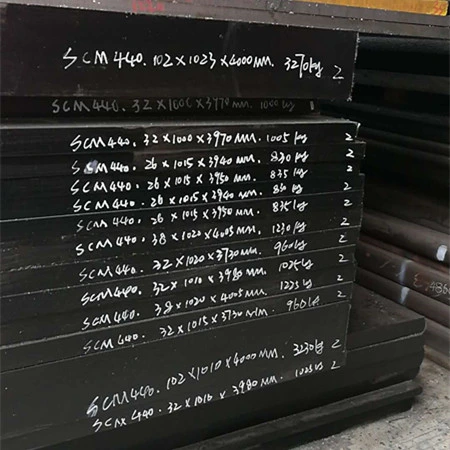 SCM440. 102×1023×4000MM. 3270kg 2
SCM440. 32×1000×3970MM. 1000kg 1
SCM440. 32×1000×3970MM. 1005kg 2
SCM440. 26×1015×3940MM. 830kg 2
SCM440. 26×1015×3950MM. 835kg 2
SCM440. 26×1015×3940MM. 830kg 2
SCM440. 26×1015×3950MM. 835kg 2
SCM440. 38×1020×4005MM. 1230kg 2
SCM440. 32×1020×3730MM. 960kg 2
SCM440. 32×1010×3980MM. 1025kg 2
SCM440. 38×1020×4005MM. 1225kg 2
SCM440. 32×1015×3730MM. 960kg 2
SCM440. 102×1010×4000MM. 3230kg 2
SCM 440. 32×1010×3980MM. 1025kg 2